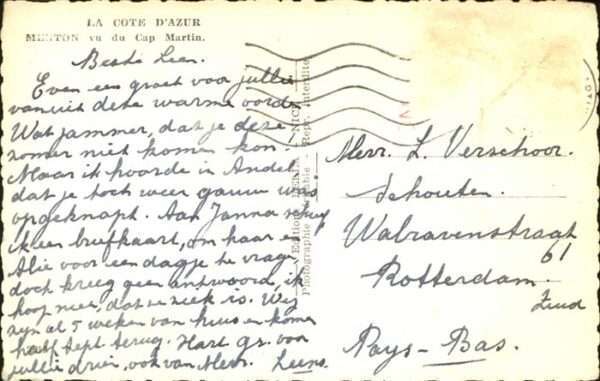 LA COTE D'AZUR
MENTON vu du Cap Martin.
Beste Leen.
Even een groet voor jullie
vanuit deze warme oorden
Wat jammer, dat je deze
zomer niet komen kon.
Maar ik hoorde in Andel
dat je toch weer gauw was
opgeknapt. Aan Janna schreef
ik een briefkaart, om haar en
Alie voor een dagje te vragen
doch kreeg geen antwoord, ik
hoop niet, dat ze ziek is. Wij
zijn al 5 weken van huis en komen
half Sept terug. Hart. gr. voor
jullie drie, ook van Mevr. Leens.
Edition
NICE
Photographie
Repr. Interdite
Mevr. L. Verschoor.
Schouten.
Walravenstraat
61
Rotterdam.
Zuid
Pays-Bas.